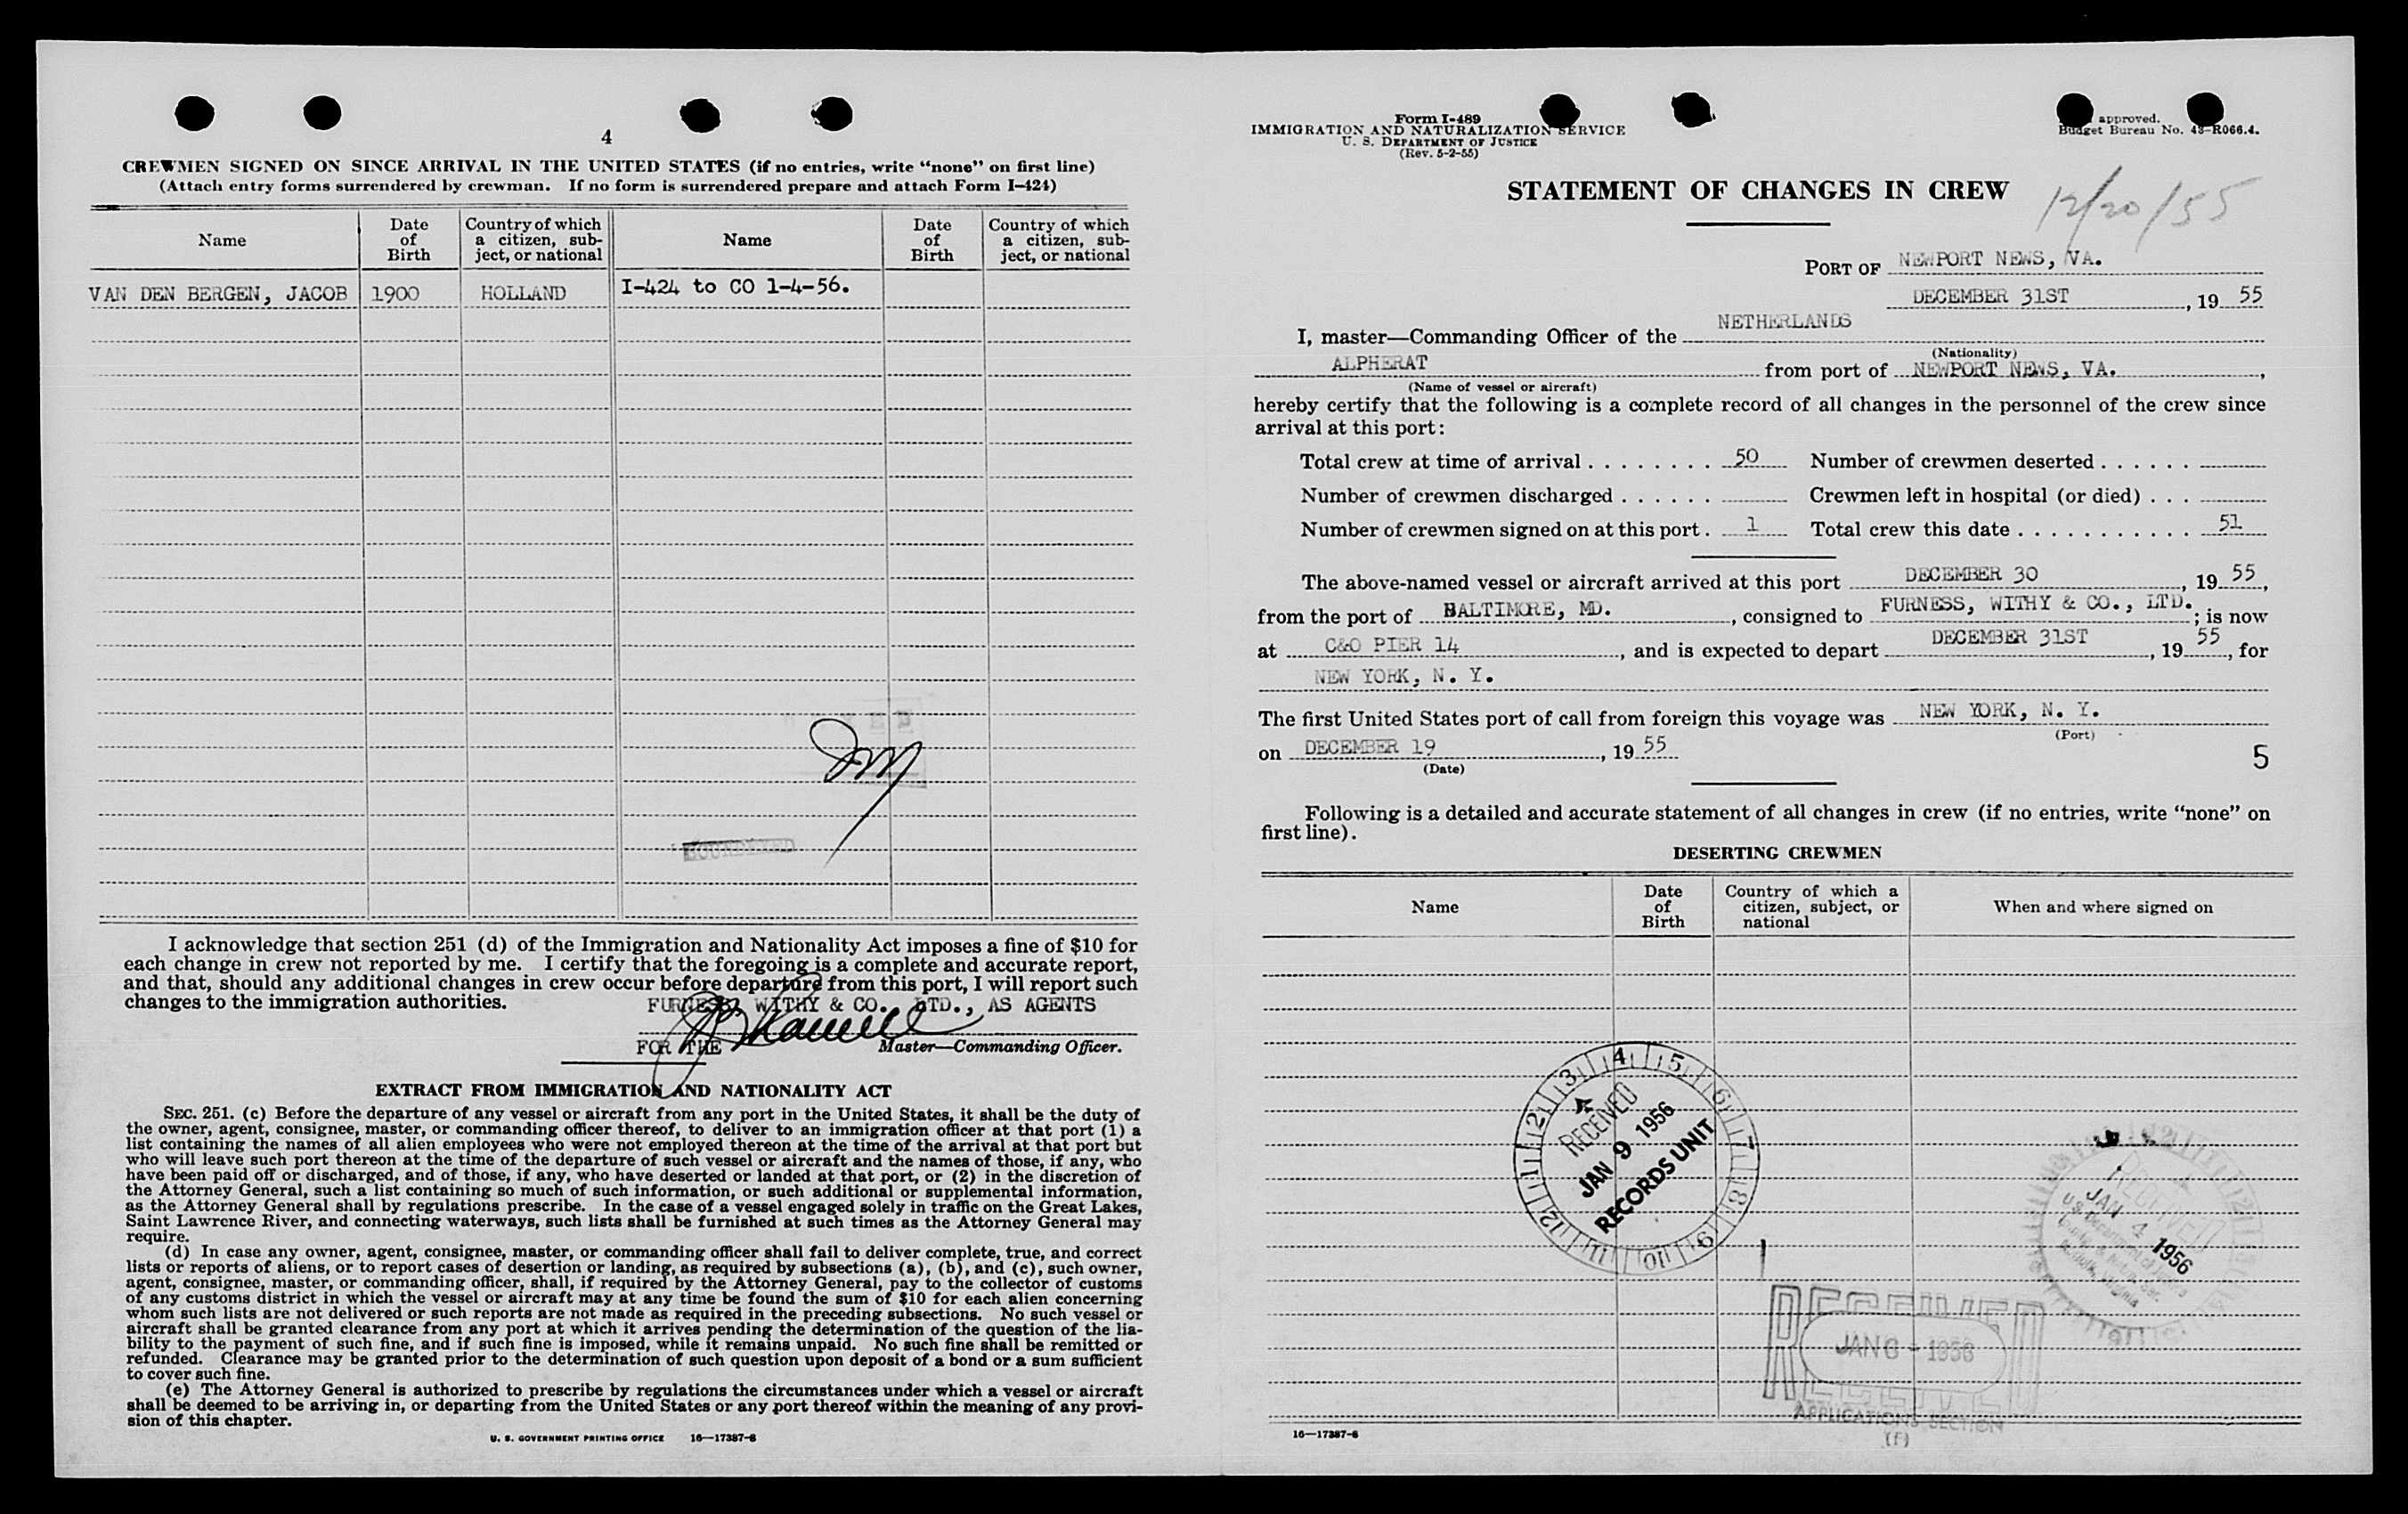 4
CREWMEN SIGNED ON SINCE ARRIVAL IN THE UNITED STATES (if no entries, write “none” on first line)
(Attach entry forms surrendered by crewman. If no form is surrendered prepare and attach Form I–424)
Name
Date of Birth
Country of which a citizen, sub- ject, or national
Name
Date of Birth
Country of which a citizen, sub- ject, or national
VAN DEN BERGEN, JACOB 1900 HOLLAND I-424 to CO 1-4-56.
I acknowledge that section 251 (d) of the Immigration and Nationality Act imposes a fine of $10 for
each change in crew not reported by me. I certify that the foregoing is a complete and accurate report,
and that, should any additional changes in crew occur before departure from this port, I will report such
changes to the immigration authorities.
FURNESS, WITHY & CO., LTD., AS AGENTS
FOR THE Master—Commanding Officer.
EXTRACT FROM IMMIGRATION AND NATIONALITY ACT
SEC. 251. (c) Before the departure of any vessel or aircraft from any port in the United States, it shall be the duty of
the owner, agent, consignee, master, or commanding officer thereof, to deliver to an immigration officer at that port (1) a
list containing the names of all alien employees who were not employed thereon at the time of the arrival at that port but
who will leave such port thereon at the time of the departure of such vessel or aircraft and the names of those, if any, who
have been paid off or discharged, and of those, if any, who have deserted or landed at that port, or (2) in the discretion of
the Attorney General, such a list containing so much of such information, or such additional or supplemental information,
as the Attorney General shall by regulations prescribe. In the case of a vessel engaged solely in traffic on the Great Lakes,
Saint Lawrence River, and connecting waterways, such lists shall be furnished at such times as the Attorney General may
require.
(d) In case any owner, agent, consignee, master, or commanding officer shall fail to deliver complete, true, and correct
lists or reports of aliens, or to report cases of desertion or landing, as required by subsections (a), (b), and (c), such owner,
agent, consignee, master, or commanding officer, shall, if required by the Attorney General, pay to the collector of customs
of any customs district in which the vessel or aircraft may at any time be found the sum of $10 for each alien concerning
whom such lists are not delivered or such reports are not made as required in the preceding subsections. No such vessel or
aircraft shall be granted clearance from any port at which it arrives pending the determination of the question of the lia-
bility to the payment of such fine, and if such fine is imposed, while it remains unpaid. No such fine shall be remitted or
refunded. Clearance may be granted prior to the determination of such question upon deposit of a bond or a sum sufficient
to cover such fine.
(e) The Attorney General is authorized to prescribe by regulations the circumstances under which a vessel or aircraft
shall be deemed to be arriving in, or departing from the United States or any port thereof within the meaning of any provi-
sion of this chapter.
U. S. GOVERNMENT PRINTING OFFICE 16—17387-6
Form I-489
IMMIGRATION AND NATURALIZATION SERVICE
U. S. DEPARTMENT OF JUSTICE
(Rev. 5-2-55)
approved.
Budget Bureau No. 43-R066.4.
STATEMENT OF CHANGES IN CREW
12/20/55
PORT OF NEWPORT NEWS, VA.
DECEMBER 31ST, 19 55
I, master—Commanding Officer of the NETHERLANDS
(Nationality)
ALPHERAT from port of NEWPORT NEWS, VA.,
(Name of vessel or aircraft)
hereby certify that the following is a complete record of all changes in the personnel of the crew since
arrival at this port:
Total crew at time of arrival . . . . . . . . 50 Number of crewmen deserted . . . . . .
Number of crewmen discharged . . . . . . Crewmen left in hospital (or died) . . .
Number of crewmen signed on at this port . 1 Total crew this date . . . . . . . . . . . 51
The above-named vessel or aircraft arrived at this port DECEMBER 30, 19 55,
from the port of BALTIMORE, MD., consigned to FURNESS, WITHY & CO., LTD.; is now
at C&O PIER 14, and is expected to depart DECEMBER 31ST, 19 55, for
NEW YORK, N. Y.
The first United States port of call from foreign this voyage was NEW YORK, N. Y.
(Port)
on DECEMBER 19, 19 55
(Date)
5
Following is a detailed and accurate statement of all changes in crew (if no entries, write “none” on
first line).
DESERTING CREWMEN
Name
Date of Birth
Country of which a citizen, subject, or national
When and where signed on
RECEIVED
JAN 9 1956
RECORDS UNIT
RECEIVED
JAN 4 1956
RECEIVED
JAN 6 - 1956
APPLICATIONS SECTION
(F)
16—17387-6